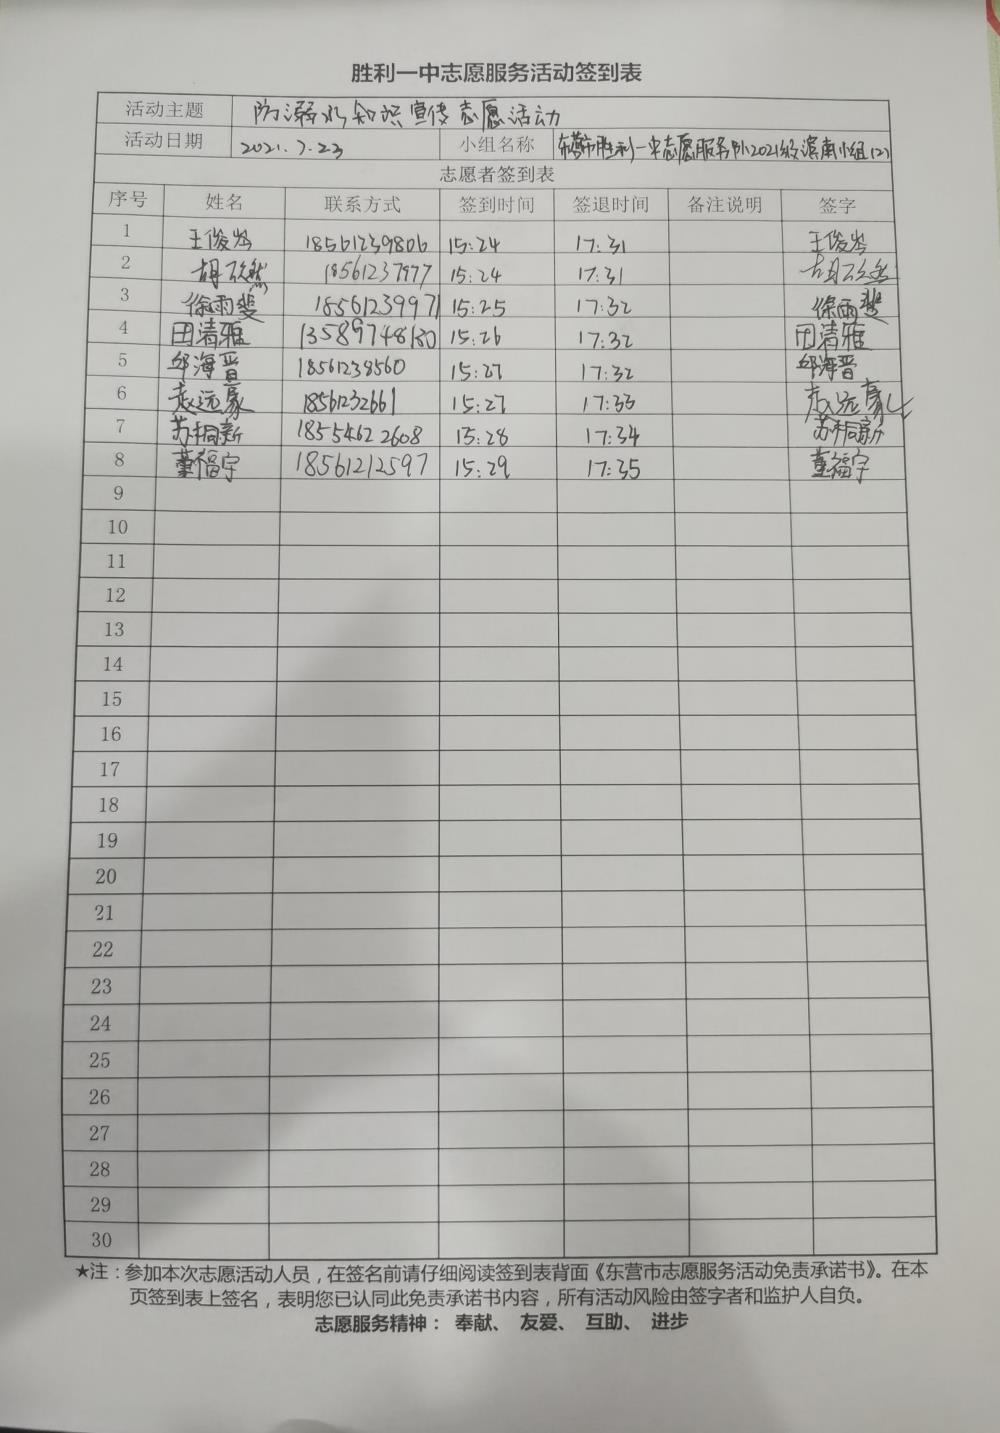 胜利一中志愿服务活动签到表
活动主题 防溺水知识宣传志愿活动
活动日期 2021.7.23 小组名称 东营市胜利一中志愿服务队2021级滨南小组(2)
志愿者签到表
序号 姓名 联系方式 签到时间 签退时间 备注说明 签字
1 王俊岑 18561239806 15:24 17:31 王俊岑
2 胡欣然 18561237977 15:24 17:31 胡欣然
3 徐雨斐 18561239971 15:25 17:32 徐雨斐
4 田清雅 13589748180 15:26 17:32 田清雅
5 邱海晋 18561238560 15:27 17:32 邱海晋
6 赵远豪 18561232661 15:27 17:33 赵远豪
7 苏桐新 18554622608 15:28 17:34 苏桐新
8 董福宇 18561212597 15:29 17:35 董福宇
9
10
11
12
13
14
15
16
17
18
19
20
21
22
23
24
25
26
27
28
29
30
★注：参加本次志愿活动人员，在签名前请仔细阅读签到表背面《东营市志愿服务活动免责承诺书》。在本
页签到表上签名，表明您已认同此免责承诺书内容，所有活动风险由签字者和监护人自负。
志愿服务精神： 奉献、 友爱、 互助、 进步